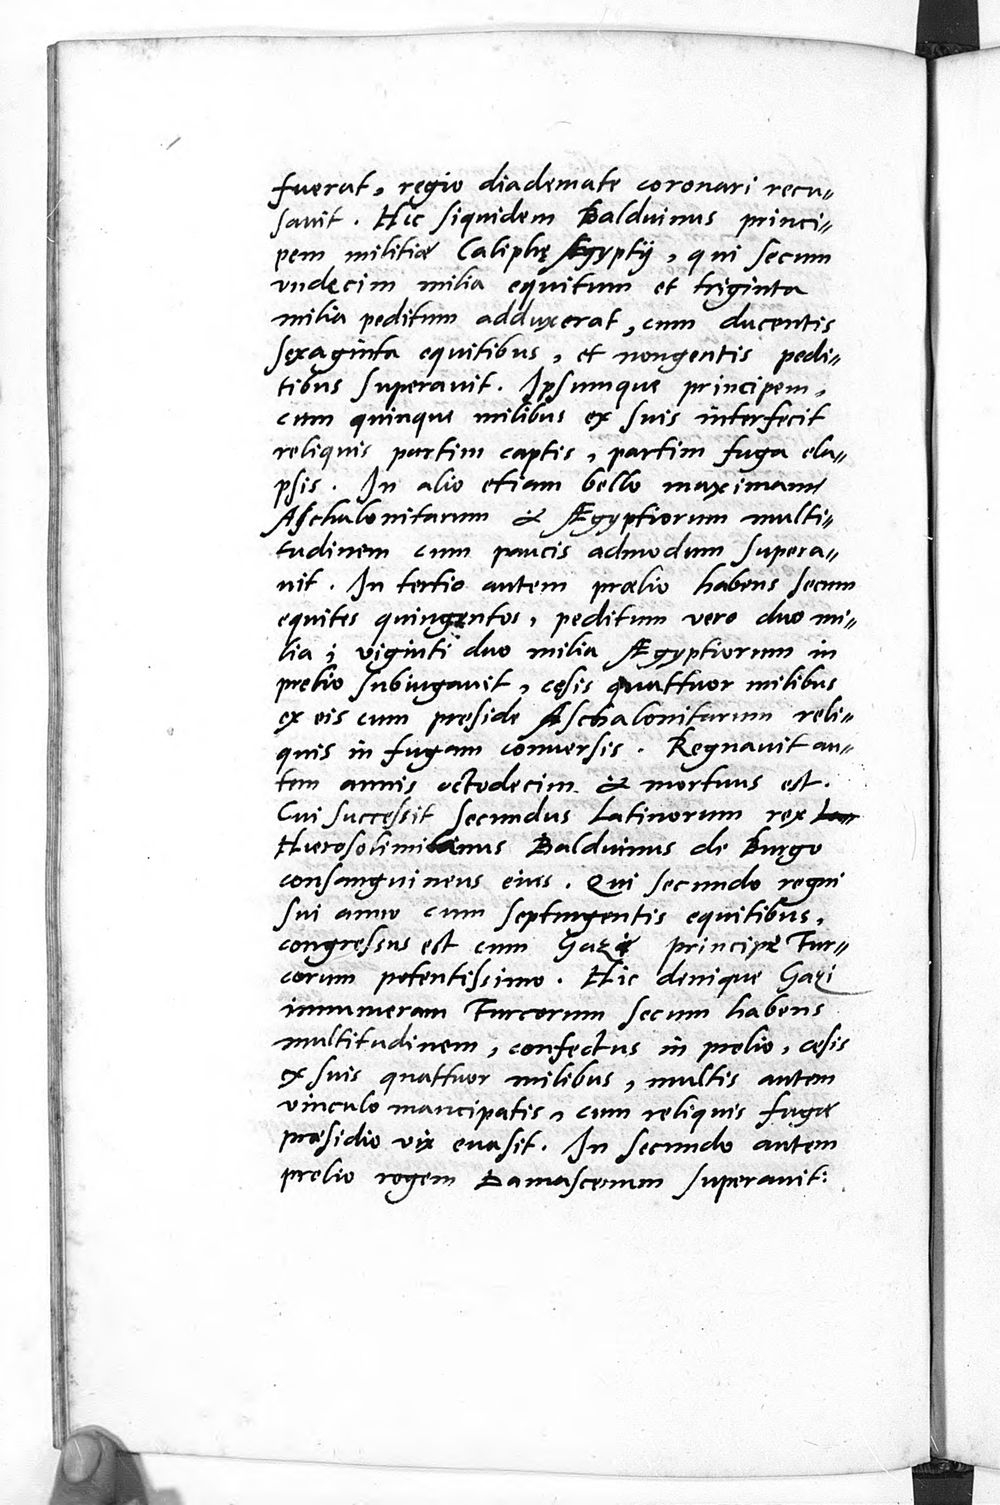 fuerat, regio diademate coronari recu=
sauit. Hic siquidem Balduinus princi=
pem militiæ Caliphę Ægyptij, qui secum
vndecim milia equitum et triginta
milia peditum adduxerat, cum ducentis
sexaginta equitibus, et nongentis pedi=
tibus superauit. Ipsumque principem,
cum quinque milibus ex suis interfecit
reliquis partim captis, partim fuga ela=
psis. In alio etiam bello maximam
Aschalonitarum & Ægyptiorum multi=
tudinem cum paucis admodum supera=
uit. In tertio autem prælio habens secum
equites quingentos, peditum vero duo mi=
lia; viginti duo milia Ægyptiorum in
prelio subiugauit, cęsis quattuor milibus
ex eis cum preside Aschalonitarum reli=
quis in fugam conuersis. Regnauit au=
tem annis octodecim & mortuus est.
Cui successit secundus Latinorum rex
Hierosolimitanus Balduinus de Burgo
consanguineus eius. Qui secundo regni
sui anno cum septingentis equitibus,
congressus est cum Gazi principe Tur=
corum potentissimo. Hic denique Gazi
innumeram Turcorum secum habens
multitudinem, confectus in prelio, cęsis
ex suis quattuor milibus, multis autem
vinculo mancipatis, cum reliquis fugæ
præsidio vix euasit. In secundo autem
prelio regem Damascenum superauit: